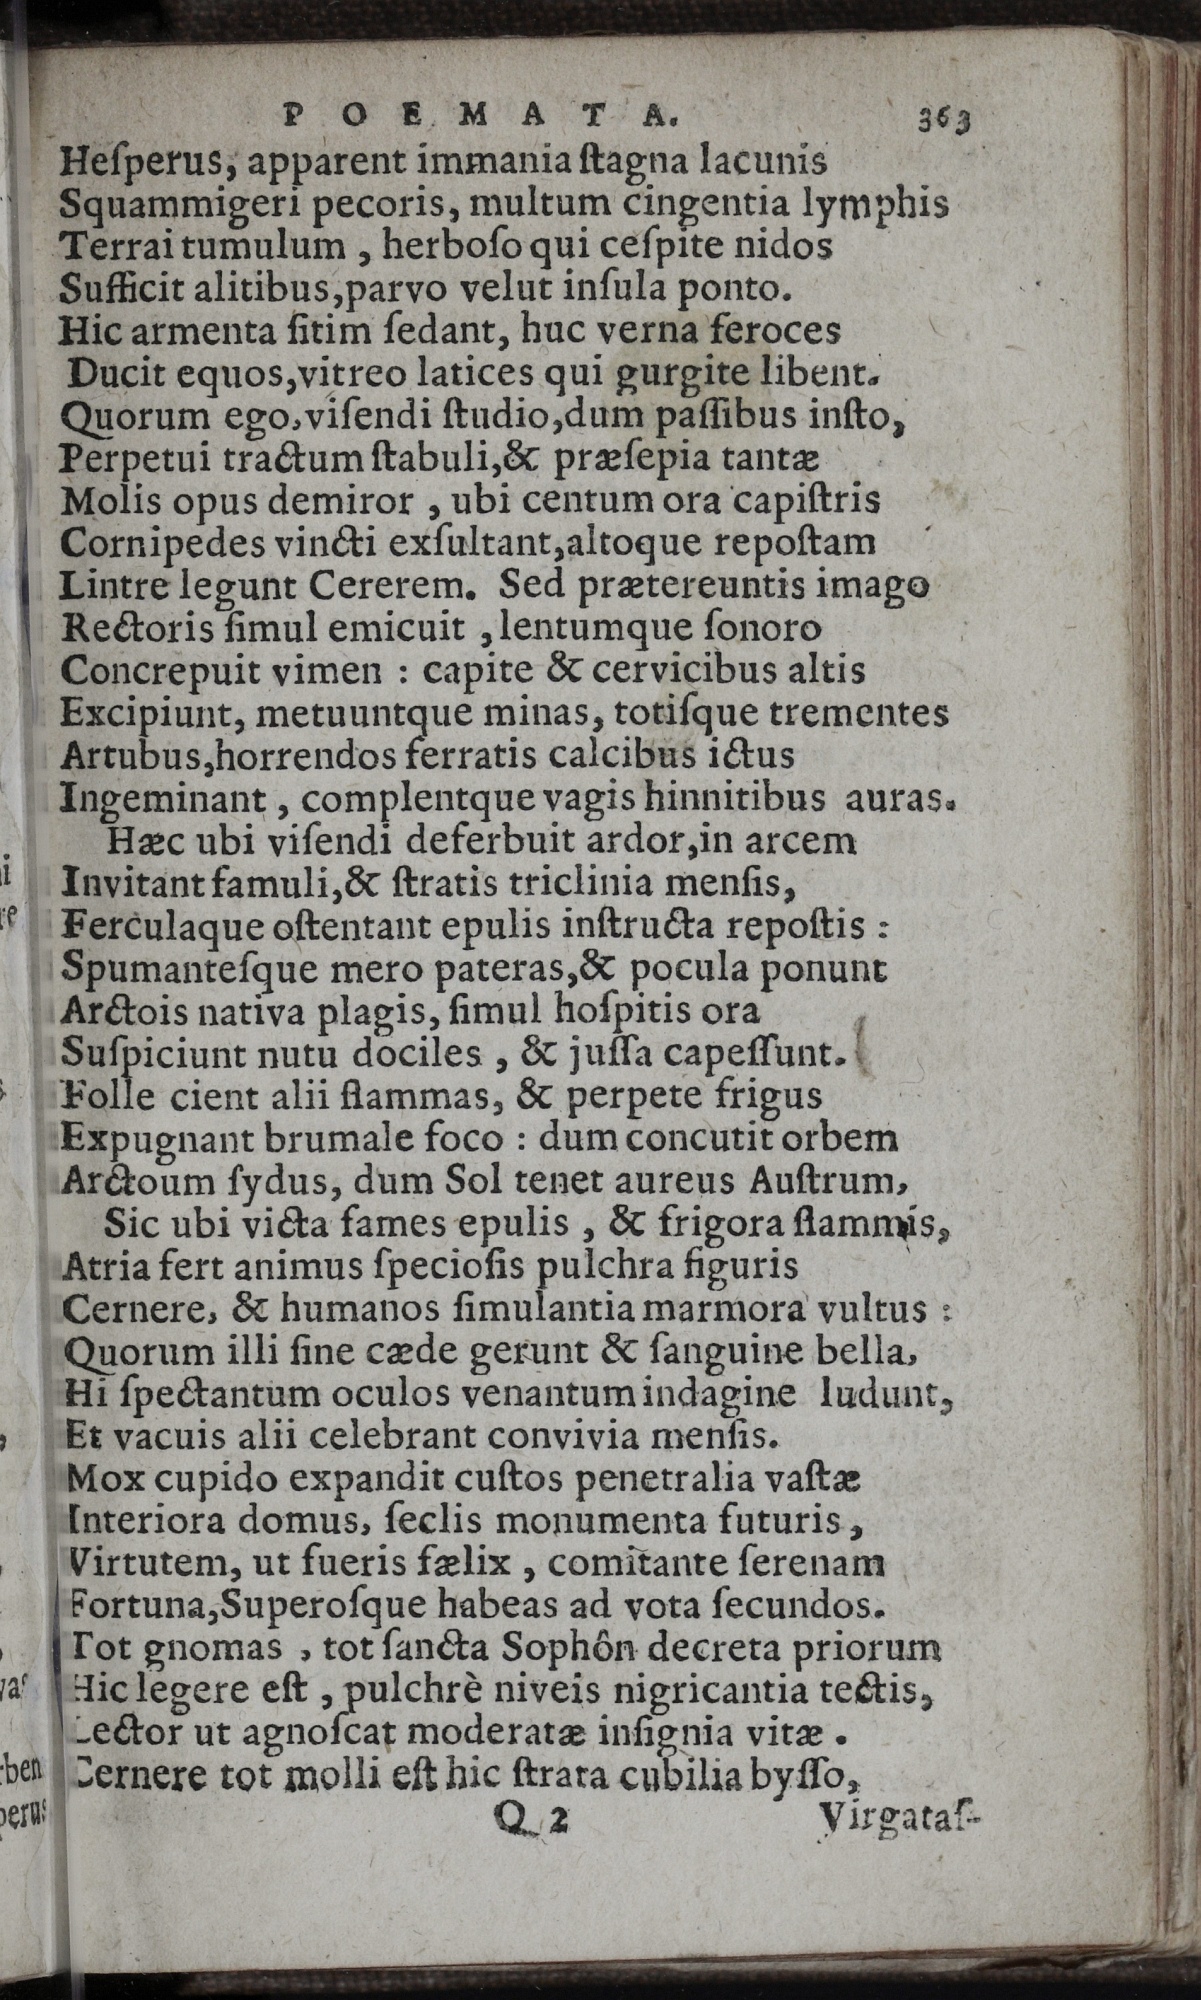 POEMATA. 363
Heſperus, apparent immania ſtagna lacunis
Squammigeri pecoris, multum cingentia lymphis
Terrai tumulum, herboſo qui ceſpite nidos
Sufficit alitibus, parvo velut inſula ponto.
Hic armenta ſitim ſedant, huc verna feroces
Ducit equos, vitreo latices qui gurgite libent.
Quorum ego, viſendi ſtudio, dum paſſibus inſto,
Perpetui tractum ſtabuli, & præſepia tantæ
Molis opus demiror, ubi centum ora capiſtris
Cornipedes vincti exſultant, altoque repoſtam
Lintre legunt Cererem. Sed prætereuntis imago
Rectoris ſimul emicuit, lentumque ſonoro
Concrepuit vimen : capite & cervicibus altis
Excipiunt, metuuntque minas, totiſque trementes
Artubus, horrendos ferratis calcibus ictus
Ingeminant, complentque vagis hinnitibus auras.
Hæc ubi viſendi deferbuit ardor, in arcem
Invitant famuli, & ſtratis triclinia menſis,
Ferculaque oſtentant epulis inſtructa repoſtis :
Spumanteſque mero pateras, & pocula ponunt
Arctois nativa plagis, ſimul hoſpitis ora
Suſpiciunt nutu dociles, & juſſa capeſſunt.
Folle cient alii flammas, & perpete frigus
Expugnant brumale foco : dum concutit orbem
Arctoum ſydus, dum Sol tenet aureus Auſtrum,
Sic ubi victa fames epulis, & frigora flammis,
Atria fert animus ſpecioſis pulchra figuris
Cernere, & humanos ſimulantia marmora vultus :
Quorum illi ſine cæde gerunt & ſanguine bella,
Hi ſpectantum oculos venantum indagine ludunt,
Et vacuis alii celebrant convivia menſis.
Mox cupido expandit cuſtos penetralia vaſtæ
Interiora domus, ſeclis monumenta futuris,
Virtutem, ut fueris fælix, comitante ſerenam
Fortuna, Superoſque habeas ad vota ſecundos.
Tot gnomas, tot ſancta Sophôn decreta priorum
Hic legere eſt, pulchrè niveis nigricantia tectis,
Lector ut agnoſcat moderatæ inſignia vitæ.
Cernere tot molli eſt hic ſtrata cubilia byſſo,
Q 2 Virgataſ-